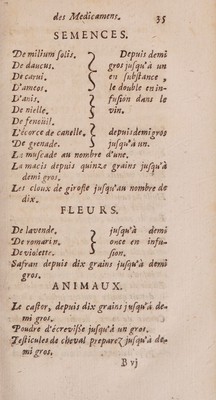 des Medicamens. 35
SEMENCES.
De milium solis. } Depuis demi
De daucus. gros jusqu'à un
De carui. en substance,
D'ameos. le double en in-
D'anis. fusion dans le
De nielle. vin.
De fenoüil.
L'écorce de canelle. } depuis demi gros
De grenade. jusqu'à un.
La muscade au nombre d'une.
La macis depuis quinze grains jusqu'à
demi gros.
Les cloux de girofle jusqu'au nombre de
dix.
FLEURS.
De lavende. } jusqu'à demi
De romarin. once en infu-
De violette. sion.
Safran depuis dix grains jusqu'à demi
gros.
ANIMAUX.
Le castor, depuis dix grains jusqu'à de-
mi gros.
Poudre d'écrevisse jusqu'à un gros.
Testicules de cheval preparez jusqu'à de-
mi gros.
B vj